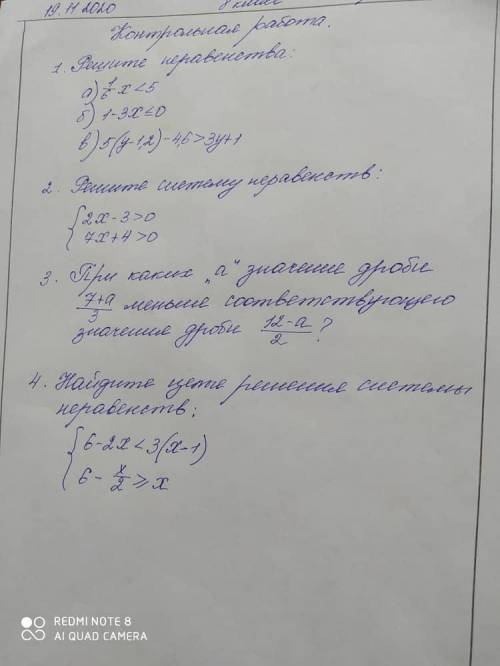 19.11.2020 8 класс
Контрольная работа.
1. Решите неравенства:
а) 1/6 x < 5
б) 1-3x ≤ 0
в) 5(y-1,2)-4,6 > 3y+1
2. Решите систему неравенств:
{2x-3>0
7x+4>0
3. При каких „a" значение дроби
(7+a)/3 меньше соответствующего
значения дроби (12-a)/2 ?
4. Найдите целые решения системы
неравенств:
{6-2x<3(x-1)
6 - x/2 ≥ x
REDMI NOTE 8
AI QUAD CAMERA